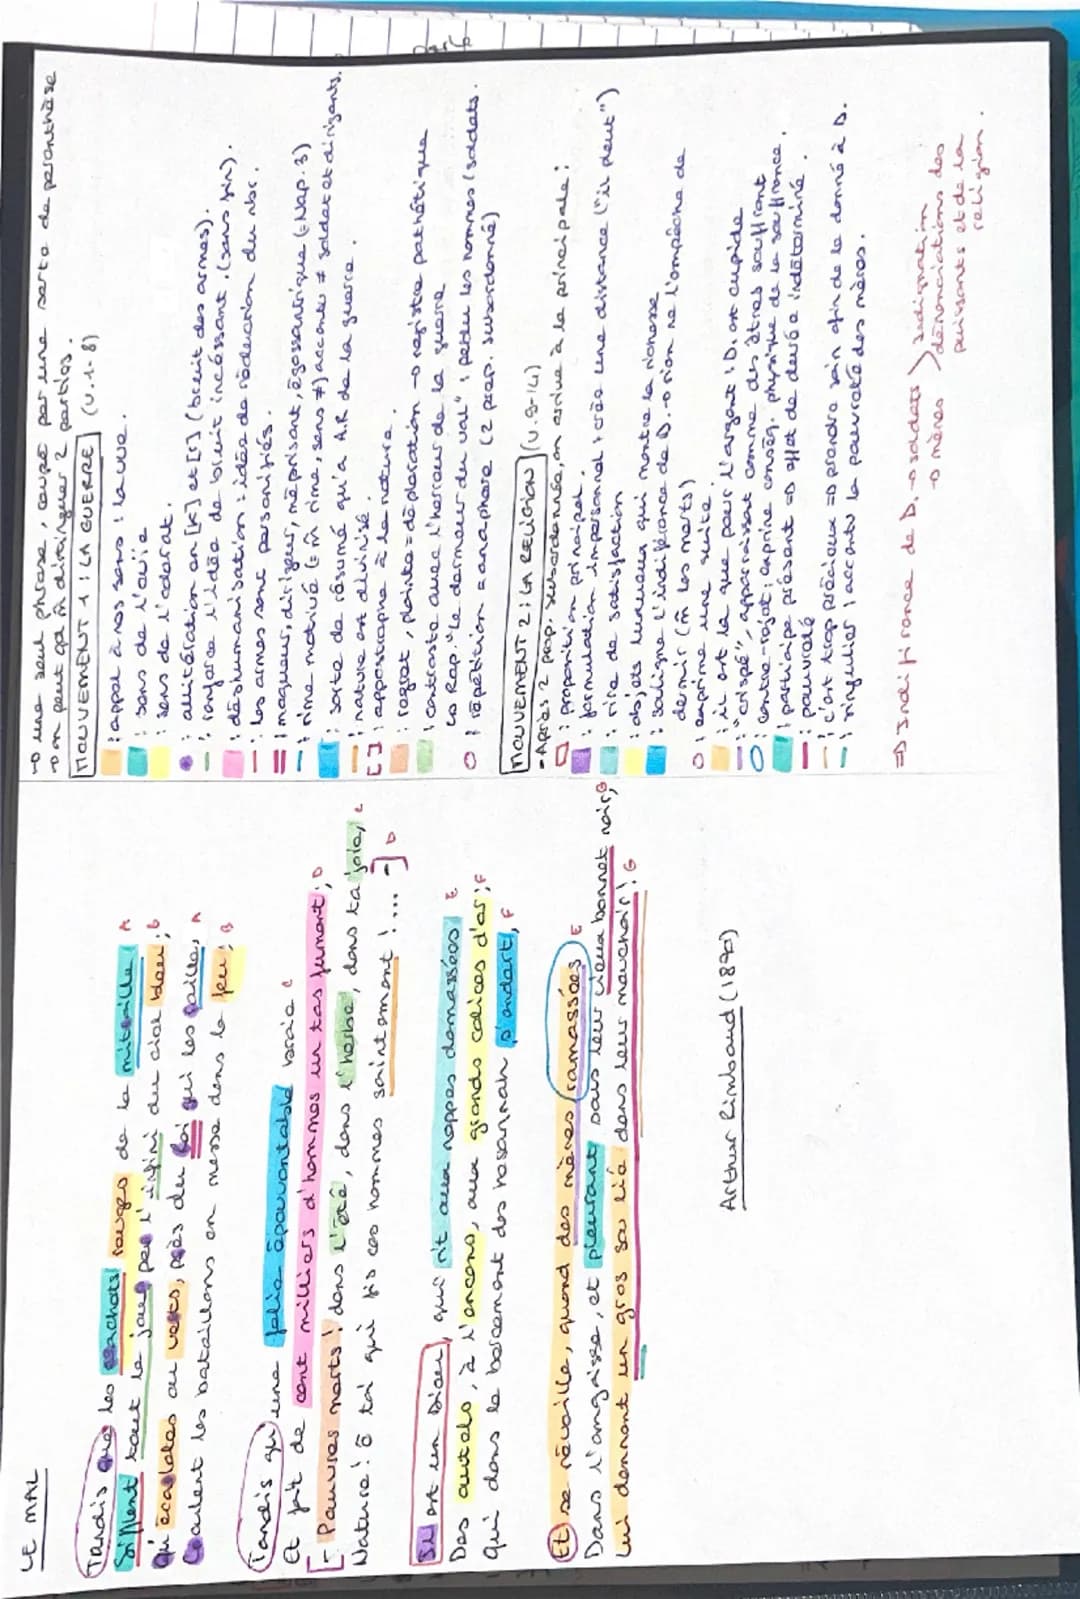 LE MAL
Tandis que les crachats rouges de la mitraille A
Sifflent tout le jour par l'infini du ciel bleu ; B
Qu'écarlates ou verts, près du Roi qui les raille, A
Croulent les bataillons en masse dans le feu ; B
Tandis qu'une folie épouvantable broie C
Et fait de cent milliers d'hommes un tas fumant ; D
[- Pauvres morts ! dans l'été, dans l'herbe, dans ta joie, C
Nature ! ô toi qui fis ces hommes saintement !... -] D
Il est un Dieu, qui rit aux nappes damassées E
Des autels, à l'encens, aux grands calices d'or ; F
Qui dans le bercement des hosannah s'endort, F
Et se réveille, quand des mères, ramassées E
Dans l'angoisse, et pleurant sous leur vieux bonnet noir, G
Lui donnent un gros sou lié dans leur mouchoir ! G
Arthur Rimbaud (1870)
-> une seul phrase, coupé par une sorte de paranthèse
-> on peut qd m̂ distinguer 2 parties.
MOUVEMENT 1 : LA GUERRE (v.1-8)
: appel à nos sens : la vue.
: sens de l'ouïe
: sens de l'odorat.
: allitération en [k] et [r] (bruit des armes).
: renforce l'idée de bruit incéssant. (sans fin).
: déshumanisation : idée de réduction du nbr.
: les armes sont personifiés.
: moqueur, dirigeur, méprisant, égossantrique (= Nap. 3)
: rime motivé (= m̂ rime, sens ≠) accentue ≠ soldat et dirigants.
: sorte de résumé qu'a A.R de la guerre.
: nature est divinisé.
[ ] : appostrophe à la nature.
: regret, plainte = déploration -> registre pathétique
: contraste avec l'horreur de la guerre
Rap. "le dormeur du val" : perdu les nomes (soldats.
: répétition = anaphore (2 prop. subordonné)
MOUVEMENT 2 : LA RELIGION (v.9-14)
- Après 2 prop. subordonnée, on arrive à la principale :
: proposition principal.
: formulation impersonnel : crée une distance ("il pleut")
: rire de satisfaction
: objets luxueux qui montre la richesse
: souligne l'indiférence de D. -> rien ne l'empêche de
dormir (m̂ les morts)
: exprime une suite.
: il est la que pour l'argent : D. est cupide
: "crispé", apparaissat comme des êtres souffrant
: contre-rejet : exprime conség. physique de la souffrance.
: participe présent => effet de durée indéterminé.
: pauvreté
: c'est trop précieux => prendre soin afin de le donné à D.
: singulier : accentu la pauvreté des mères.
=> Indifirence de D. -> soldats ) Indignation
-> mères dénonciations des
puissants et de la
religion.